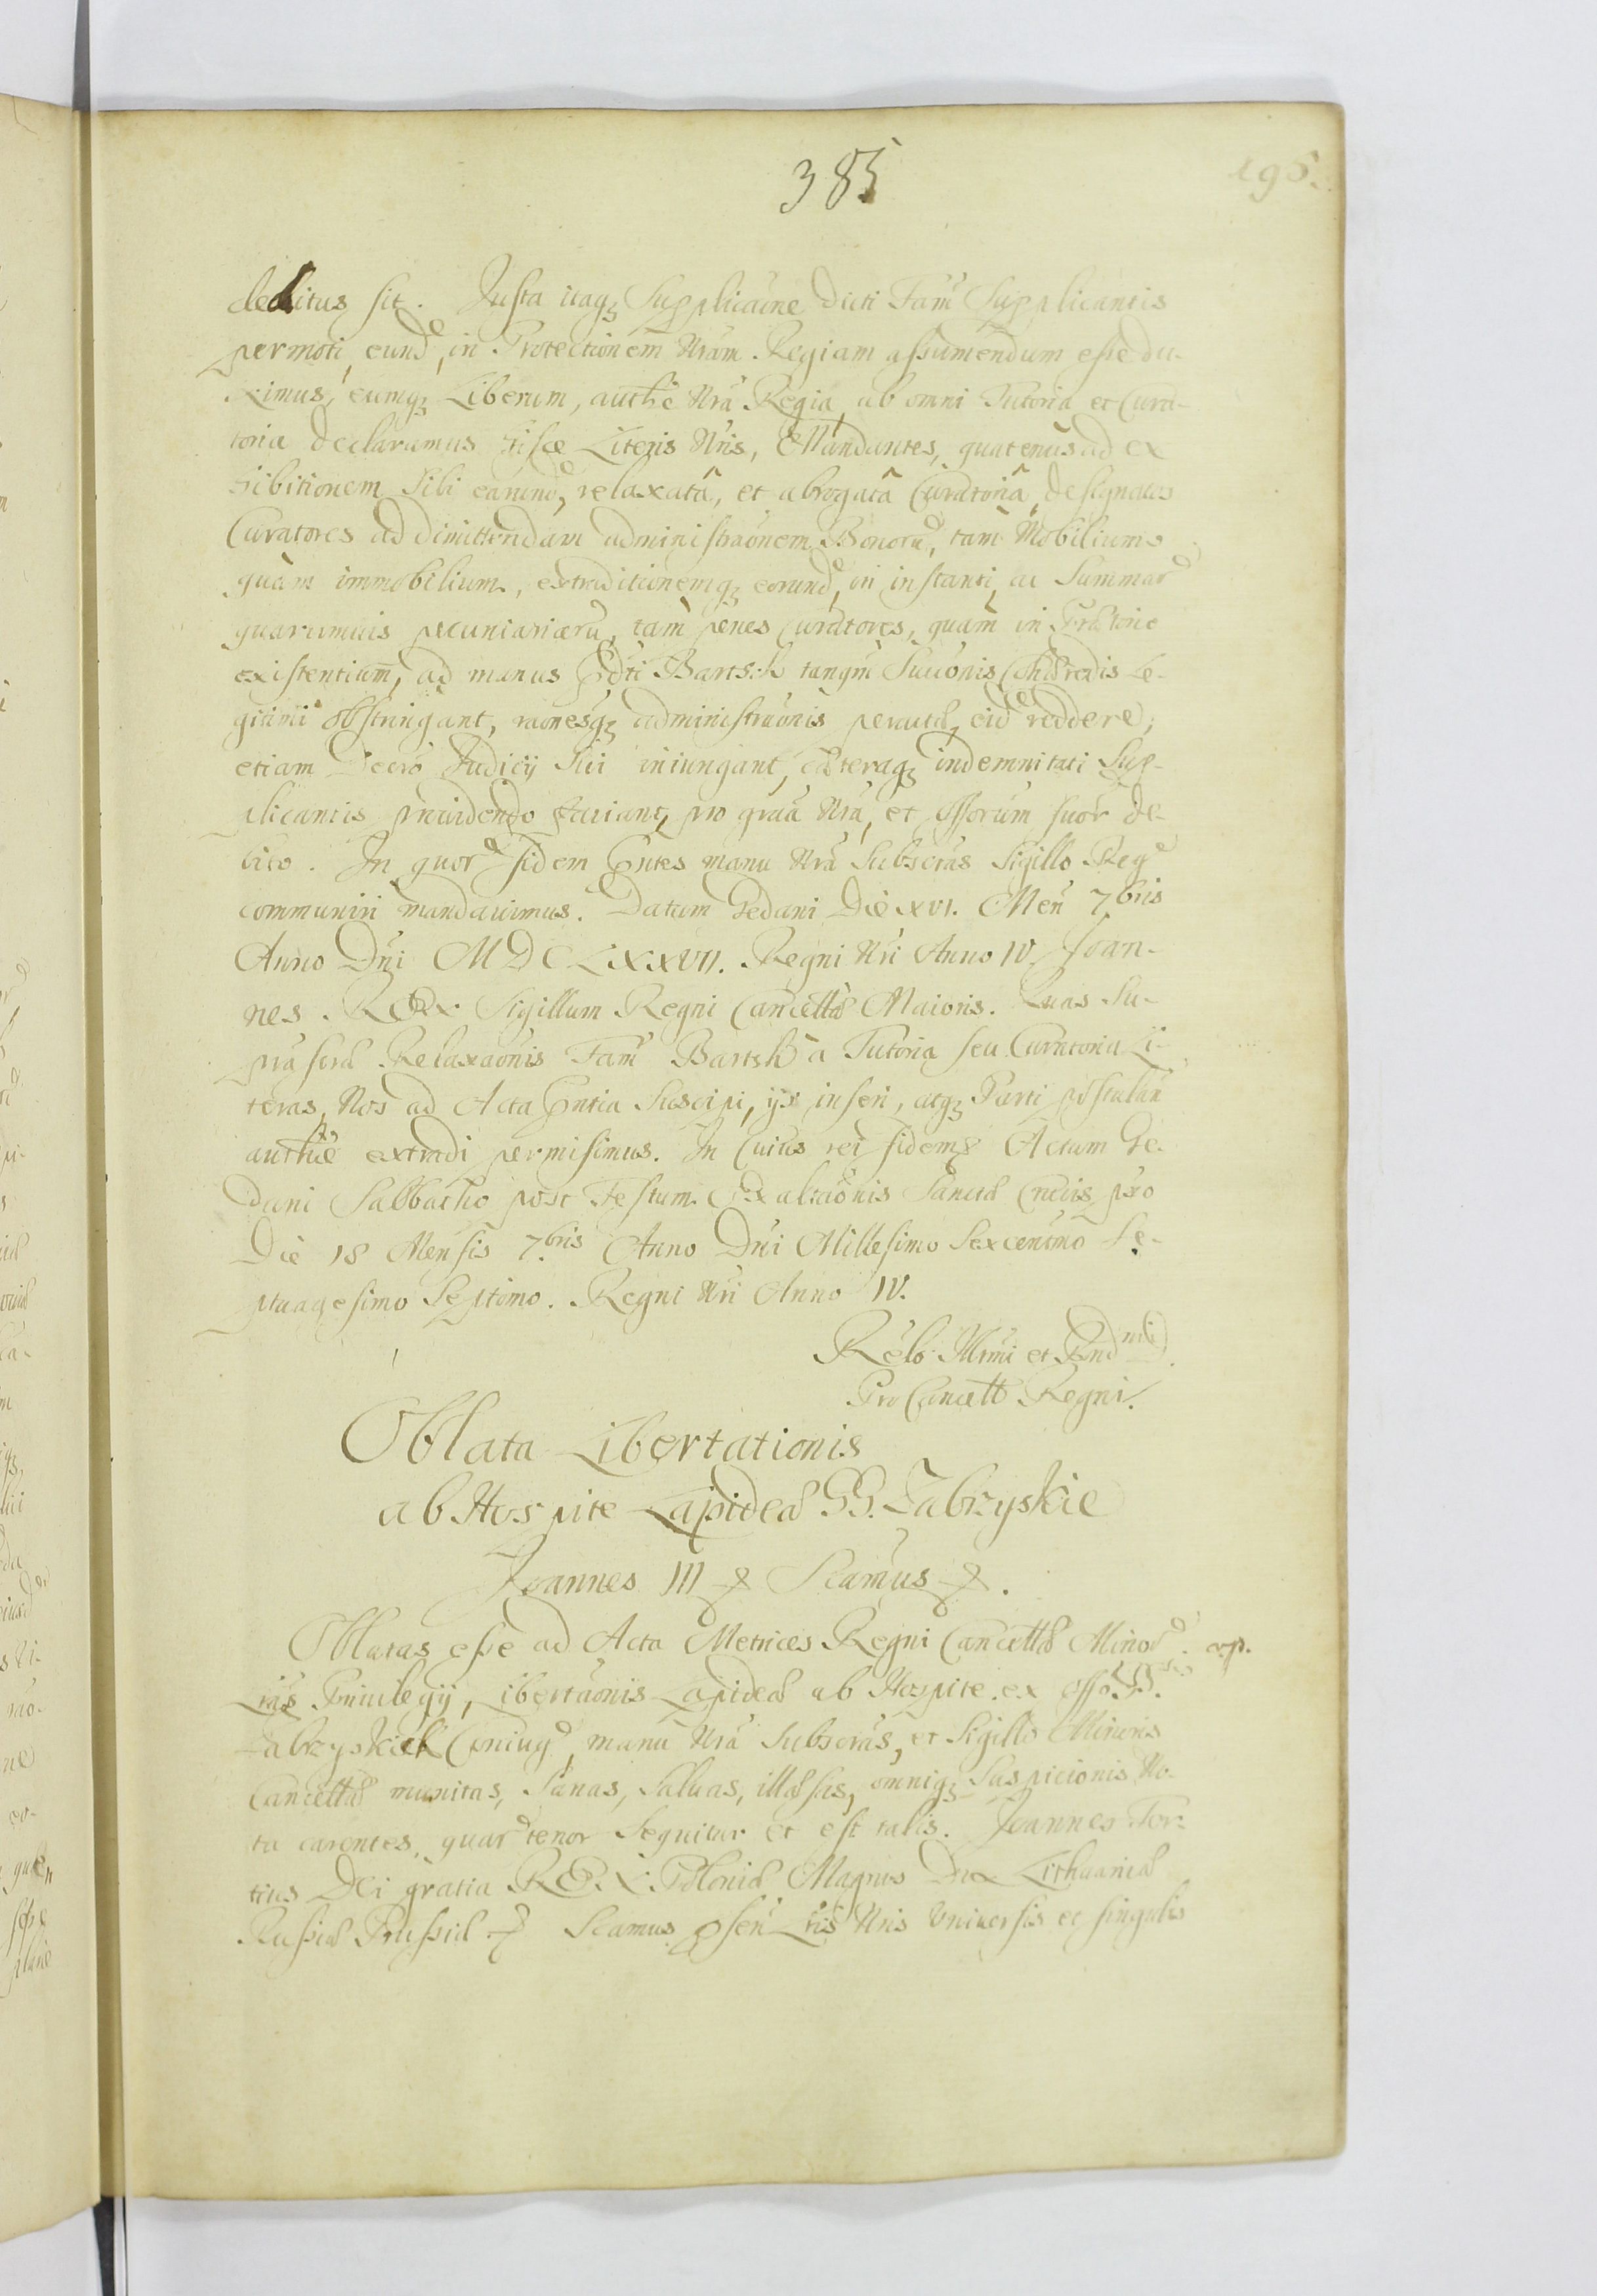 385
196.
deditus sit. Justa itaq₃ Supplicaõne dicti Fam̃ Supplicantis
permoti, eund, in Protectionem Nr̃am Regiam assumendum esse du-
ximus, eumq₃ Liberum, authẽ Nr̃a Regia, ab omni Tutoria et Cura-
toria declaramus hisce Literis Nr̃is, Mandantes, quatenus ad ex
hibitionem Sibi earund, relaxatâ, et abrogatâ Curatoriâ, designatos
Curatores ad dimittendam administraõnem Bonorũ, tam Mobilium
quàm immobilium, extraditionemq₃ eorund, in instanti, ac Summar
quarumuis pecuniariarũ, tam penes Curatores, quàm in Prætorio
existentium, ad manus Pdti Bartsch tanqm̃ Succonis Cohæredis Le-
gitimi obstringant, raõnesq₃ administraõnis peractæ, eid reddere,
etiam Decr̃o Judicij Sui iniungant, cæteraq₃ indemnitati Sup-
plicantis prouidendo faciant, pro gr̃aa Nr̃a, et Offorum suor de-
bito. In quor fidem Pn̄tes manu Nr̃a Subscr̃as Sigillo Reg
communiri mandauimus. Datum Gedani Die XVI. Men̄ 7bris
Anno Dn̄i MDCLXXVII. Regni Nr̃i Anno IV. Joan-
nes REX. Sigillum Regni Cancellæ Maioris. Quas Su-
pra scrãs Relaxaõnis Fam̃ Bartsch à Tutoria seu Curatoria Li-
teras, Nos ad Acta Pn̄tia Suscipi, ijs inseri, atq₃ Parti postulan̄
authẽ extradi permisimus. In Cuius rei fidem Actum Ge-
dani Sabbatho post Festum Exaltaõnis Sanctæ Crucis pr̃o
Die 18 Mensis 7bris Anno Dn̄i Millesimo Sexcentm̃o Se-
ptuagesimo Septimo. Regni Nr̃i Anno IV.
Relõ Illm̃i et Rnd mi
Pro Cancell Regni.
Oblata Libertationis
ab Hospite Lapideæ GG. Zabrzyskie
Joannes III Scamus
Oblatas esse ad Acta Metrices Regni Cancellæ Minor. v.p.
Lr̃as Priuilegij, Libertaõnis Lapideæ ab Hospite ex offo GG.
Zabrzyskich Coniug, manũ Nr̃a Subscr̃as, et Sigillo Minoris
Cancellæ munitas, Sanas, Saluas, illæsas, omniq₃ Suspicionis No-
ta carentes, quar tenor Sequitur et est talis. Joannes Ter-
tius Dei gratia REX Poloniæ Magnus Dux Lithuaniæ
Russiæ Prussiæ Scamus psen̄ Lr̃is Nr̃is Vniuersis et singulis